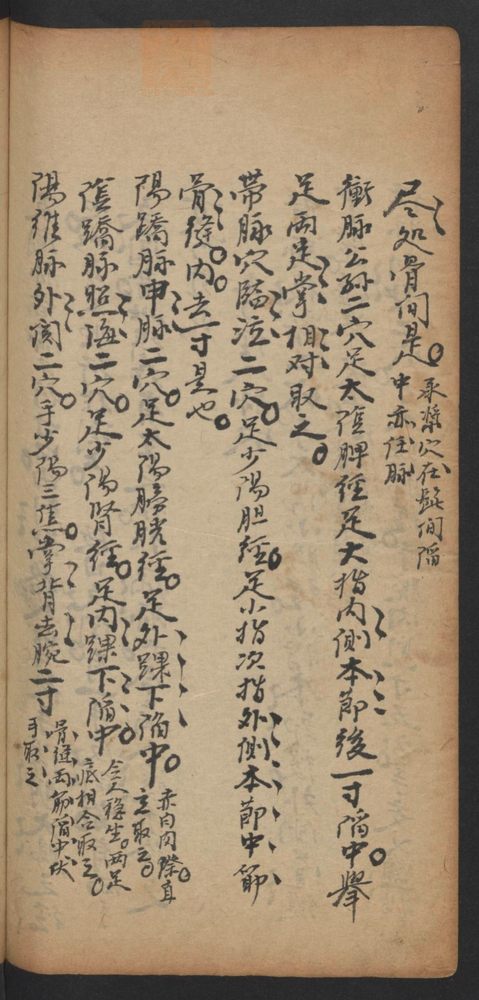 尽处骨间是。承漿穴在髭间陷
中亦任脉
衝脉公孙二穴足太陰脾経足大指内側本節後一寸陷中。舉
足兩足掌相对取之。
帶脉穴臨泣二穴。足少陽胆経。足小指次指外側本節中節
骨縫内。去一寸是也。
陽蹻脉申脉二穴。足太陽膀胱経。足外踝下陷中。赤白肉際直
立取之。
陰蹻脉照海二穴。足少陽肾経。足内踝下陷中。令人穩坐。两足
底相合取之。
陽維脉外関二穴。手少陽三焦。掌背去腕二寸骨縫两筋陷中伏
手取之